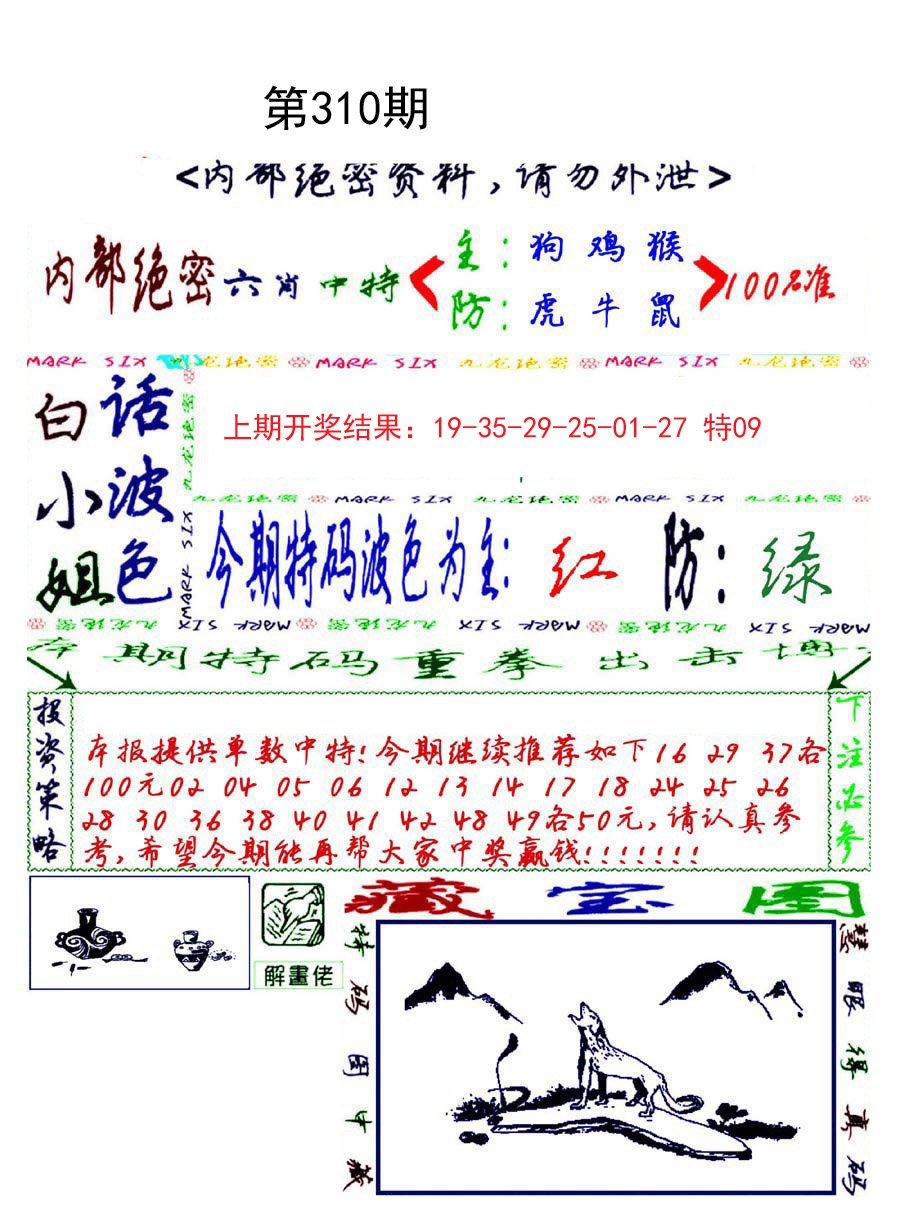 第310期
<内部绝密资料,请勿外泄>
内部绝密六肖中特
主:狗鸡猴
防:虎牛鼠
100%准
MARK SIX 九龙绝密 MARK SIX 九龙绝密 MARK SIX 九龙绝密
白话
小波
姐色
九龙绝密
MARK SIX
上期开奖结果：19-35-29-25-01-27 特09
九龙绝密 MARK SIX 九龙绝密 MARK SIX 九龙绝密
今期特码波色为主:红 防:绿
九龙绝密 MARK SIX MARK SIX 九龙绝密 MARK SIX MARK SIX 九龙绝密 MARK SIX MARK SIX
本期特码重拳出击博
投资策略
本报提供单数中特!今期继续推荐如下16 29 37各
100元02 04 05 06 12 13 14 17 18 24 25 26
28 30 36 38 40 41 42 48 49各50元,请认真参
考,希望今期能再帮大家中奖赢钱!!!!!!!
下注必参
解畫佬
藏宝图
特码图中藏
慧眼得真码